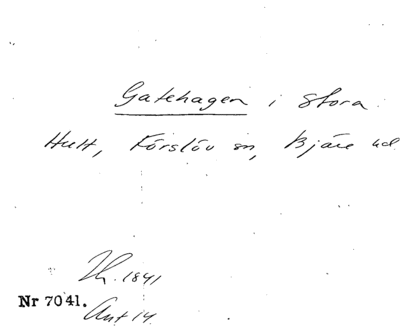 Gatehagen i Stora
Hult, Förslöv sn, Bjäre hd
Lh. 1841
Nr 7041.
Akt 14.